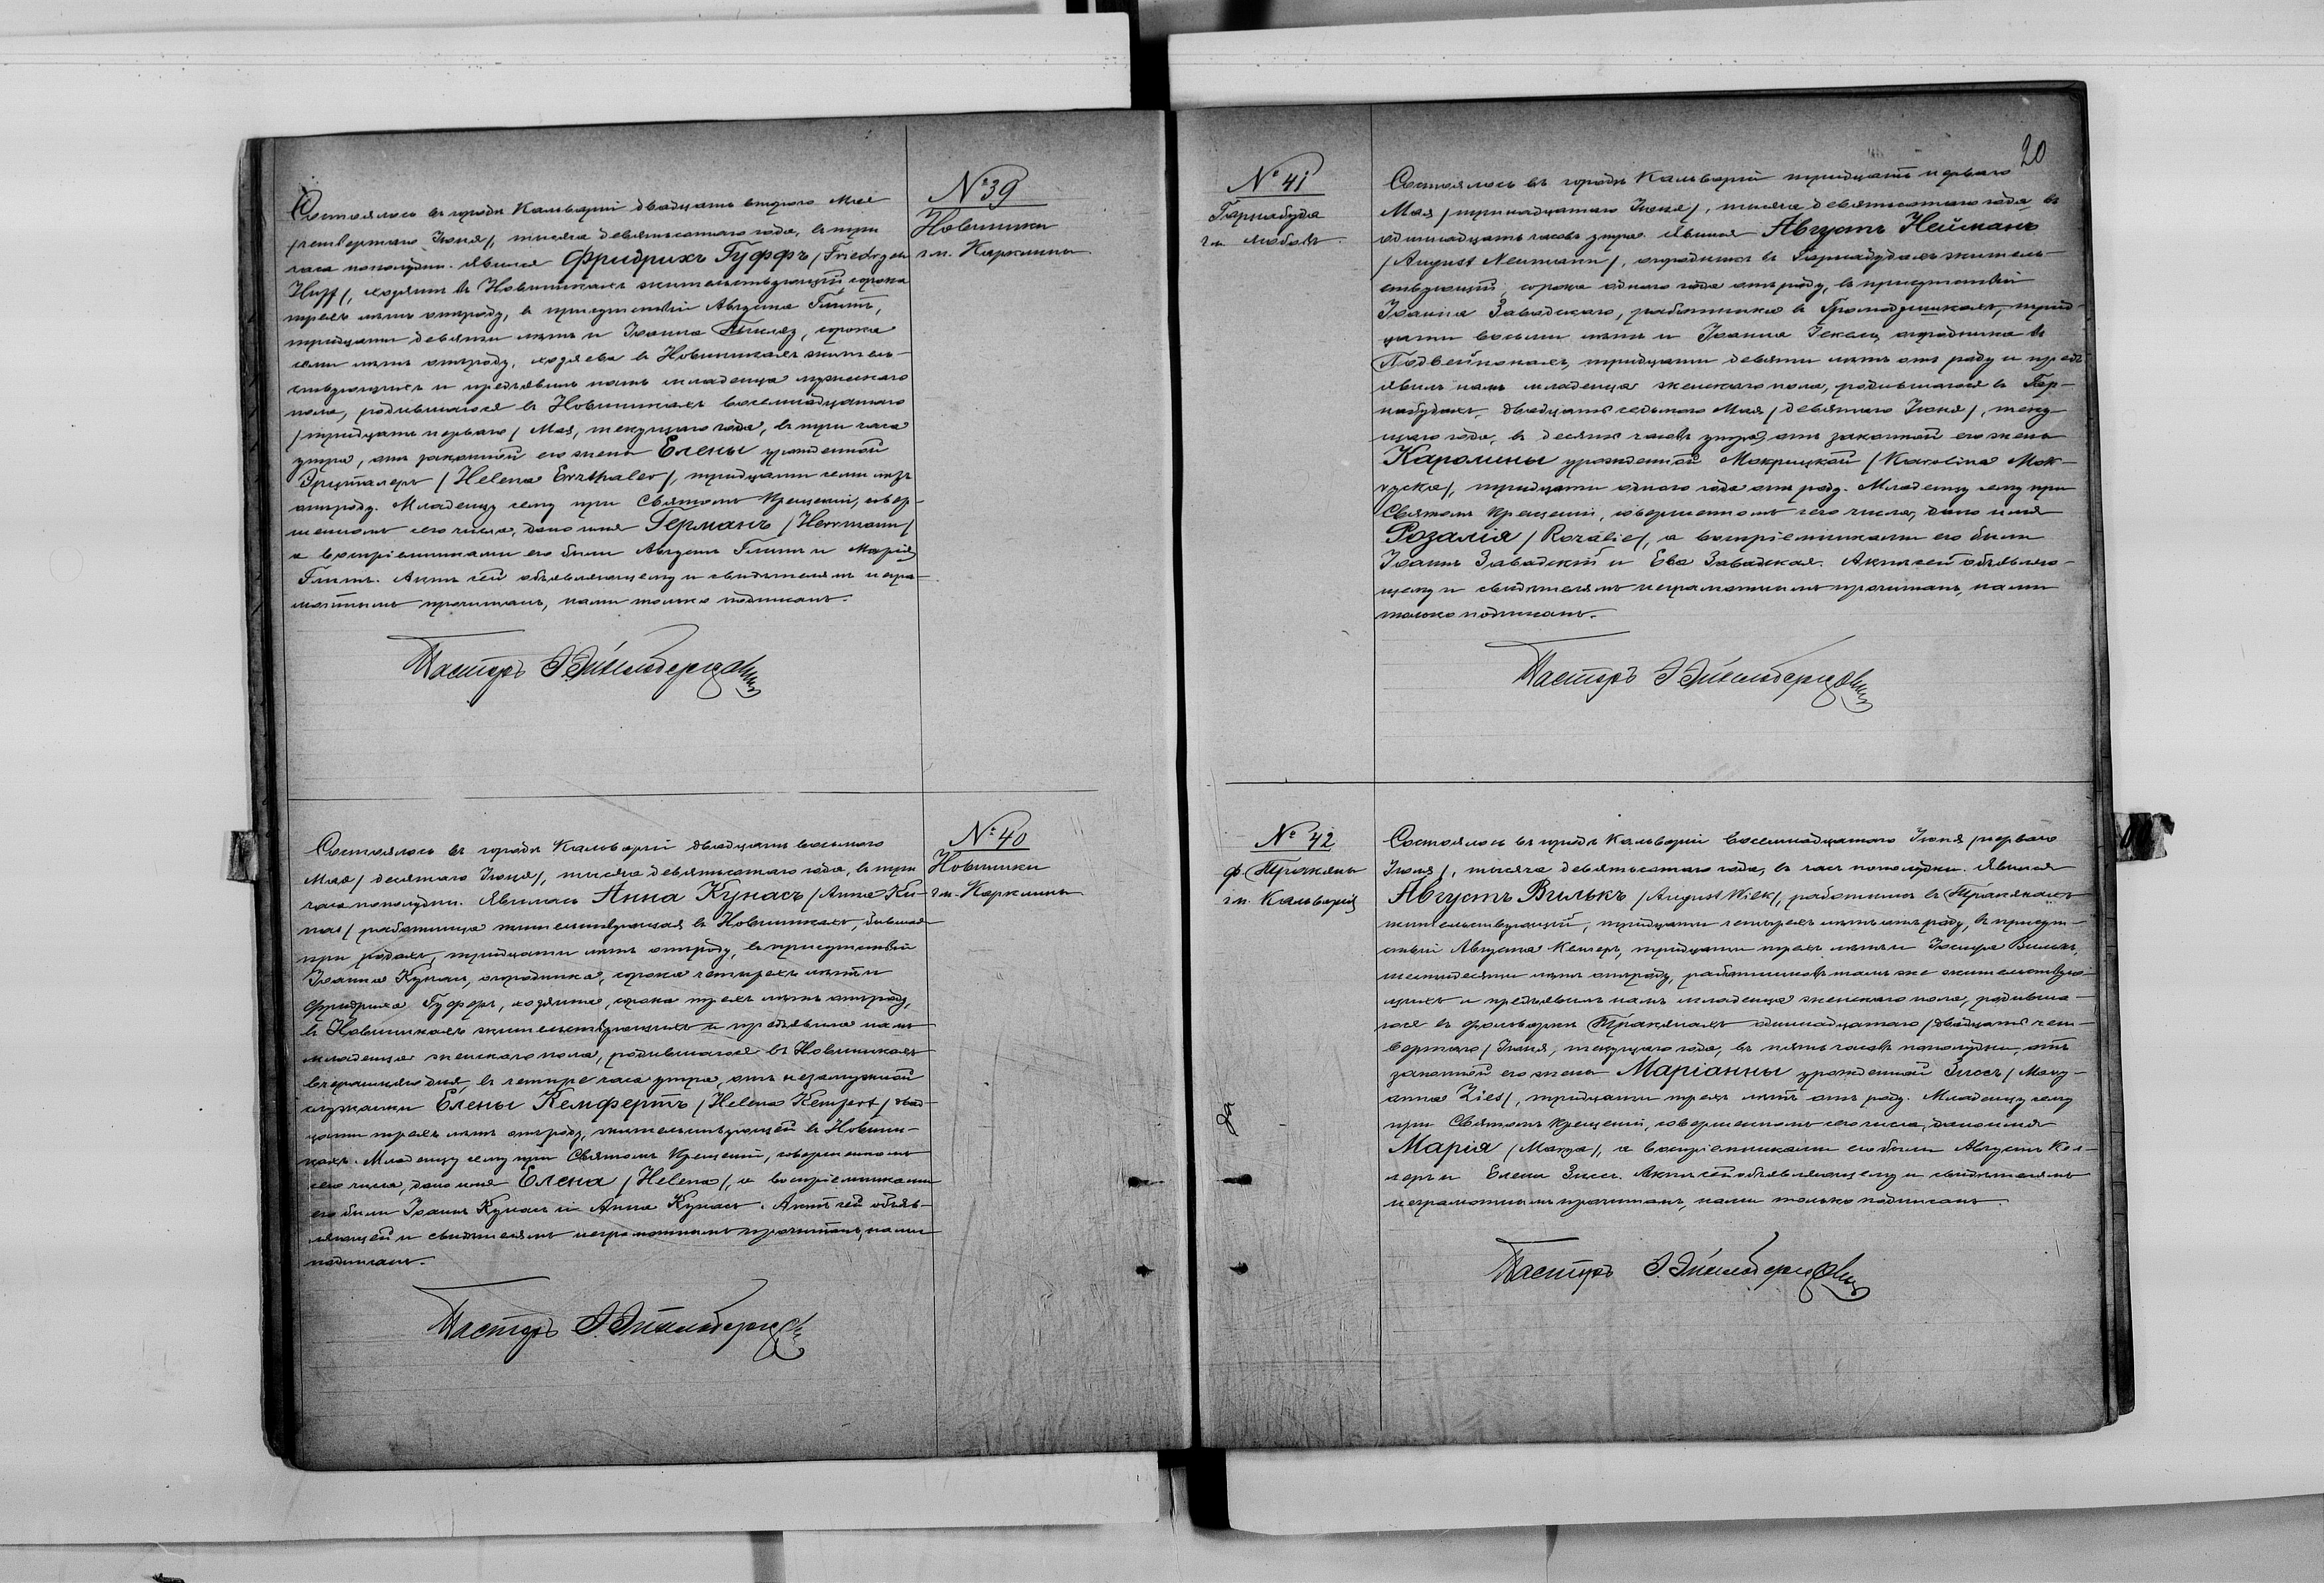 № 39
Новинники
гм. Карклины
Состоялось въ городѣ Кальваріи двадцать второго Мая
/четвертаго Іюня/, тысяча девятьсотаго года, въ три
часа пополудни. Явился Фридрихъ Гуффъ /Friedrych
Huff/, хозяинъ въ Новинникахъ жительствующій, сорока
трехъ лѣтъ отъ роду, въ присутствіи Августа
тридцати девяти лѣтъ и Іоанна сорока
семи лѣтъ отъ роду, хозяева въ Новинникахъ житель-
ствующихъ и предъявилъ намъ младенца мужескаго
пола, родившагося въ Новинникахъ восемнадцатаго
/тридцать перваго/ Мая, текущаго года, въ три часа
утра, отъ законной его жены Елены урожденной
Эрцталеръ /Helena Erzthaler/, тридцати семи лѣтъ
отъ роду. Младенцу сему при Святомъ Крещеніи, совер-
шенномъ сего числа, дано имя Германъ /Herrmann/
а воспріемниками его были Августъ и Марія
Актъ сей объявляющему и свидѣтелямъ негра-
мотнымъ прочитанъ, нами только подписанъ.
Пасторъ
№ 40
Новинники
гм. Карклины
Состоялось въ городѣ Кальваріи двадцать восьмого
Мая /десятаго Іюня/, тысяча девятьсотаго года, въ три
часа пополудни. Явилась Анна Кунасъ /Anna Ku-
nas/ работница жительствующая въ Новинникахъ, бывшая
при родахъ, тридцати лѣтъ отъ роду, въ присутствіи
Іоанна Кунасъ, огородника, сорока четырехъ лѣтъ и
Фридриха Гуффъ, хозяина, сорока трехъ лѣтъ отъ роду,
въ Новинникахъ жительствующихъ и предъявила намъ
младенца женскаго пола, родившагося въ Новинникахъ
вчерашняго дня, въ четыре часа утра, отъ незамужной
служанки Елены Кемфертъ /Helena Kempert/ двад-
цати трехъ лѣтъ отъ роду, жительствующей въ Новинни-
кахъ. Младенцу сему при Святомъ Крещеніи, совершенномъ
сего числа, дано имя Елена /Helena/, а воспріемниками
его были Іоаннъ Кунасъ и Анна Кунасъ. Актъ сей объяв-
ляющей и свидѣтелямъ неграмотнымъ прочитанъ, нами
подписанъ.
Пасторъ
20
№ 41
Гарнабуда
гм.
Состоялось въ городѣ Кальваріи тридцать перваго
Мая /тринадцатаго Іюня/, тысяча девятьсотаго года въ
одиннадцать часовъ утра. Явился Августъ Нейманъ
/August Neumann/, огородникъ въ Гарнабудахъ житель-
ствующій, сорока одного года отъ роду, въ присутствіи
Іоанна Завадскаго, работника въ трид-
цати восьми лѣтъ и Іоанна огородника въ
тридцати девяти лѣтъ отъ роду и предъ-
явилъ намъ младенца женскаго пола, родившагося въ Гар-
набудахъ, двадцать седьмого Мая /девятаго Іюня/, теку-
щаго года, въ десять часовъ утра, отъ законной его жены
Каролины урожденной Мокрицкой /Karolina Mok-
rycka/, тридцати одного года отъ роду. Младенцу сему при
Святомъ Крещеніи, совершенномъ сего числа, дано имя
Розалія /Rozalie/, а воспріемниками его были
Іоаннъ Завадскій и Ева Завадская. Актъ сей объявляю-
щему и свидѣтелямъ неграмотнымъ прочитанъ, нами
только подписанъ.
Пасторъ
№ 42
ф. Тракяны
гм. Кальварія
Состоялось въ городѣ Кальваріи восемнадцатаго Іюня /перваго
Іюля/, тысяча девятьсотаго года, въ часъ пополудни. Явился
Августъ Вилькъ /August Wilk/, работникъ въ Тракянахъ
жительствующій, тридцати четырехъ лѣтъ отъ роду, въ присут-
ствіи Августа тридцати трехъ лѣтъ и Іосифа Вилькъ,
шестидесяти лѣтъ отъ роду, работниковъ тамъ же жительствую-
щихъ и предъявилъ намъ младенца женскаго пола, родивша-
гося въ фольваркѣ Тракянахъ одиннадцатаго /двадцать чет-
вертаго/ Іюня, текущаго года, въ пять часовъ пополудни, отъ
законной его жены Маріанны урожденной Зисъ /Mary-
anna Zies/, тридцати трехъ лѣтъ отъ роду. Младенцу сему
при Святомъ Крещеніи, совершенномъ сего числа, дано имя
Марія /Marya/, а воспріемниками его были Августъ Кел-
леръ и Елена Зисъ. Актъ сей объявляющему и свидѣтелямъ
неграмотнымъ прочитанъ, нами только подписанъ.
Пасторъ